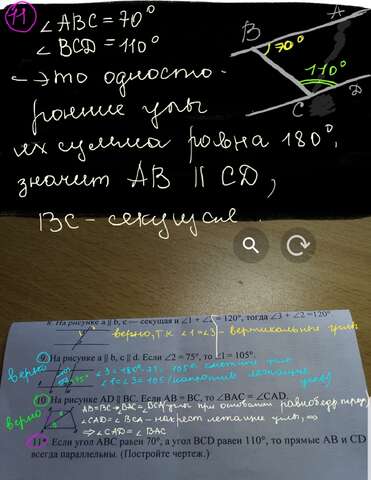 11
∠ABC = 70°
∠BCD = 110°
– это одност-
роние углы
их сумма ровна 180°,
значит AB || CD,
BC – секущая.
B
A
70°
110°
C
D
8. На рисунке a || b, c — секущая и ∠1 + ∠ = 120°, тогда ∠3 + ∠2 = 120°
верно, т.к ∠1 = ∠3 вертикальные углы
9. На рисунке a || b, c || d. Если ∠2 = 75°, то ∠1 = 105°.
верно
75°
10 На рисунке AD || BC. Если AB = BC, то ∠BAC = ∠CAD.
верно
AB = BC ⇒ ∠BAC = ∠BCA углы при основании равнобедр
∠CAD = ∠BCA – накрест лежащие углы,
⇒ ∠CAD = ∠BAC
11*. Если угол ABC равен 70°, а угол BCD равен 110°, то прямые AB и CD
всегда параллельны. (Постройте чертеж.)